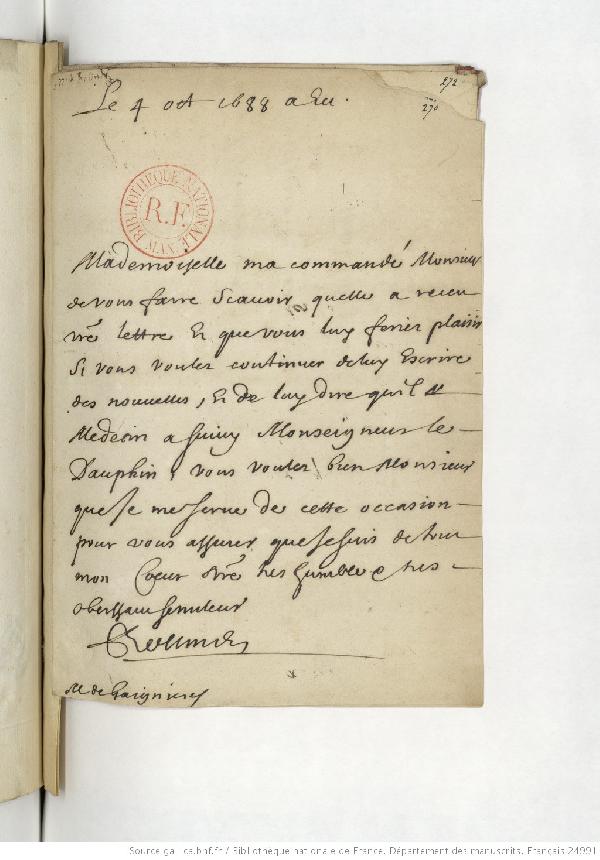 272
270
Le 4 oct 1688 a Eu.
BIBLIOTHEQUE NATIONALE MSS
R.F.
Mademoiselle ma commandé Monsieur
de vous faire Scauoir quelle a receu
vre lettre Et que vous luy feriez plaisir
Si vous voulez continuer de luy Escrire
des nouvelles, Et de luy dire quel
Medecin a suiuy Monseigneur le
Dauphin, vous voulez bien Monsieur
que Je me serue de cette occasion
pour vous assurer que Je suis de tout
mon Coeur vre tres humble e tres
obeissant seruiteur
M de Gaignieres
Source gallica.bnf.fr / Bibliothèque nationale de France. Département des manuscrits. Français 24991